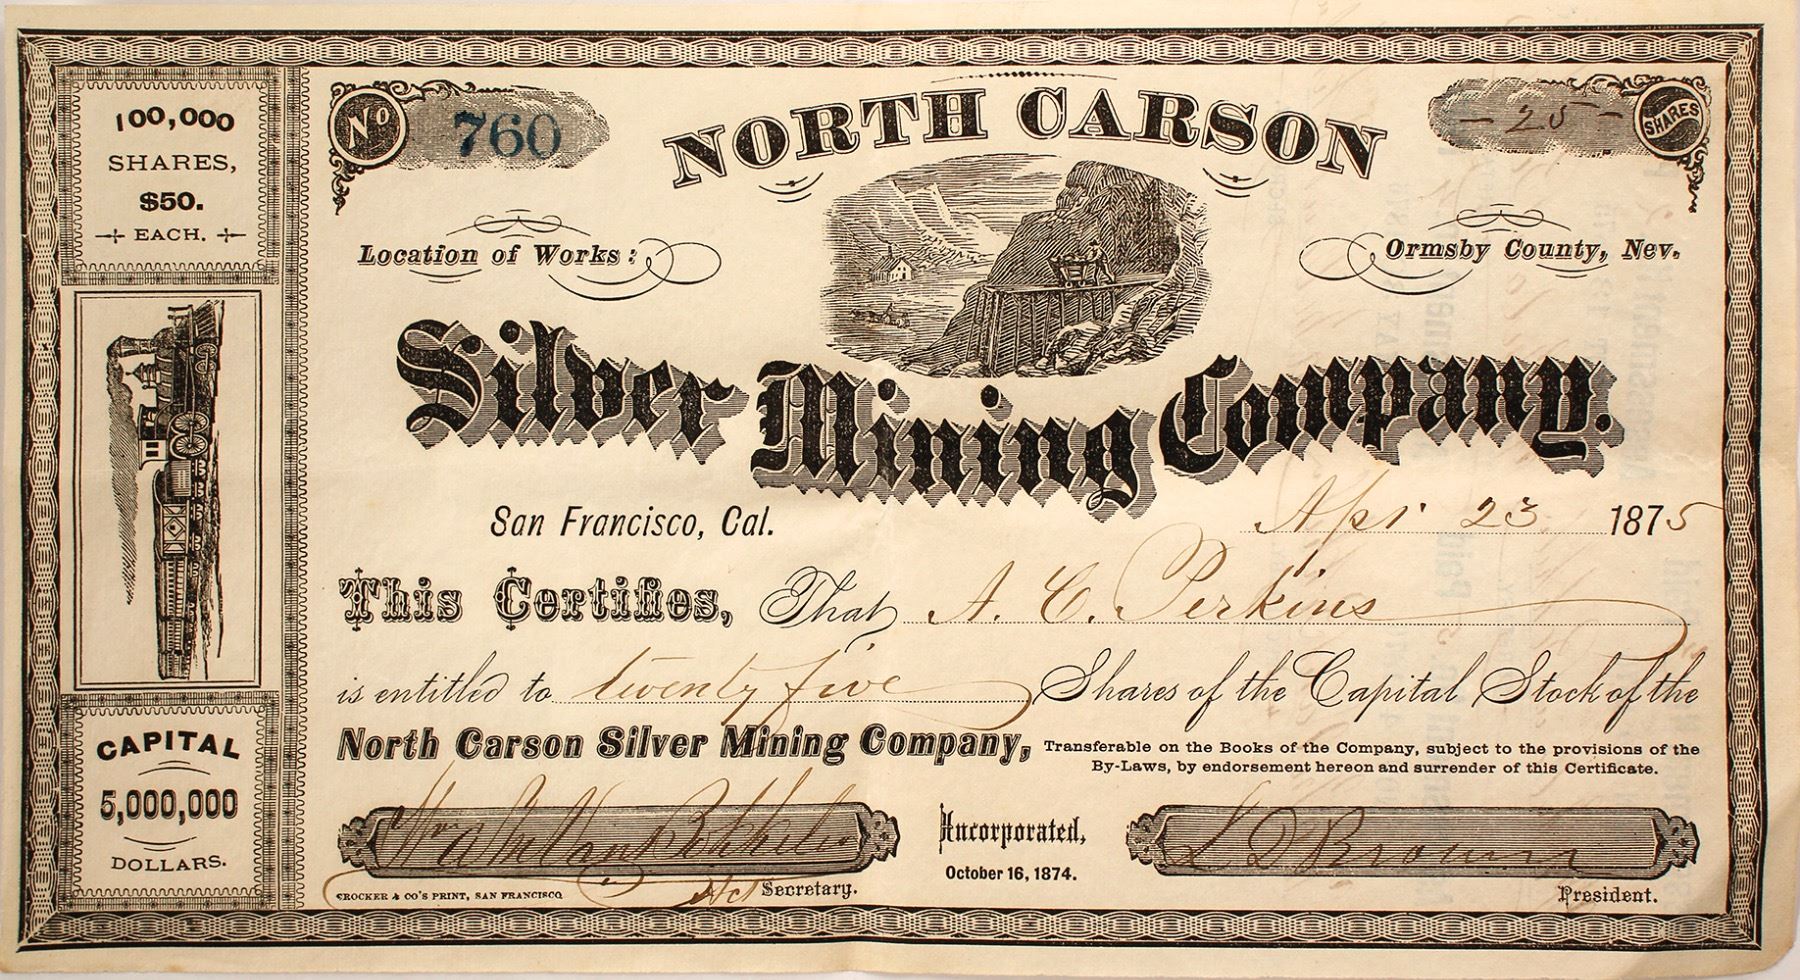 100,000
SHARES,
$50.
EACH.
No 760
NORTH CARSON
- 25 - SHARES
Location of Works:
Ormsby County, Nev.
Silver Mining Company.
San Francisco, Cal.
Apr 23 1875
This Certifies, That A. C. Perkins
is entitled to twenty five Shares of the Capital Stock of the
North Carson Silver Mining Company, Transferable on the Books of the Company, subject to the provisions of the
By-Laws, by endorsement hereon and surrender of this Certificate.
CAPITAL
5,000,000
DOLLARS.
Incorporated,
October 16, 1874.
L D Brown
CROCKER & CO'S PRINT, SAN FRANCISCO
Act Secretary.
President.